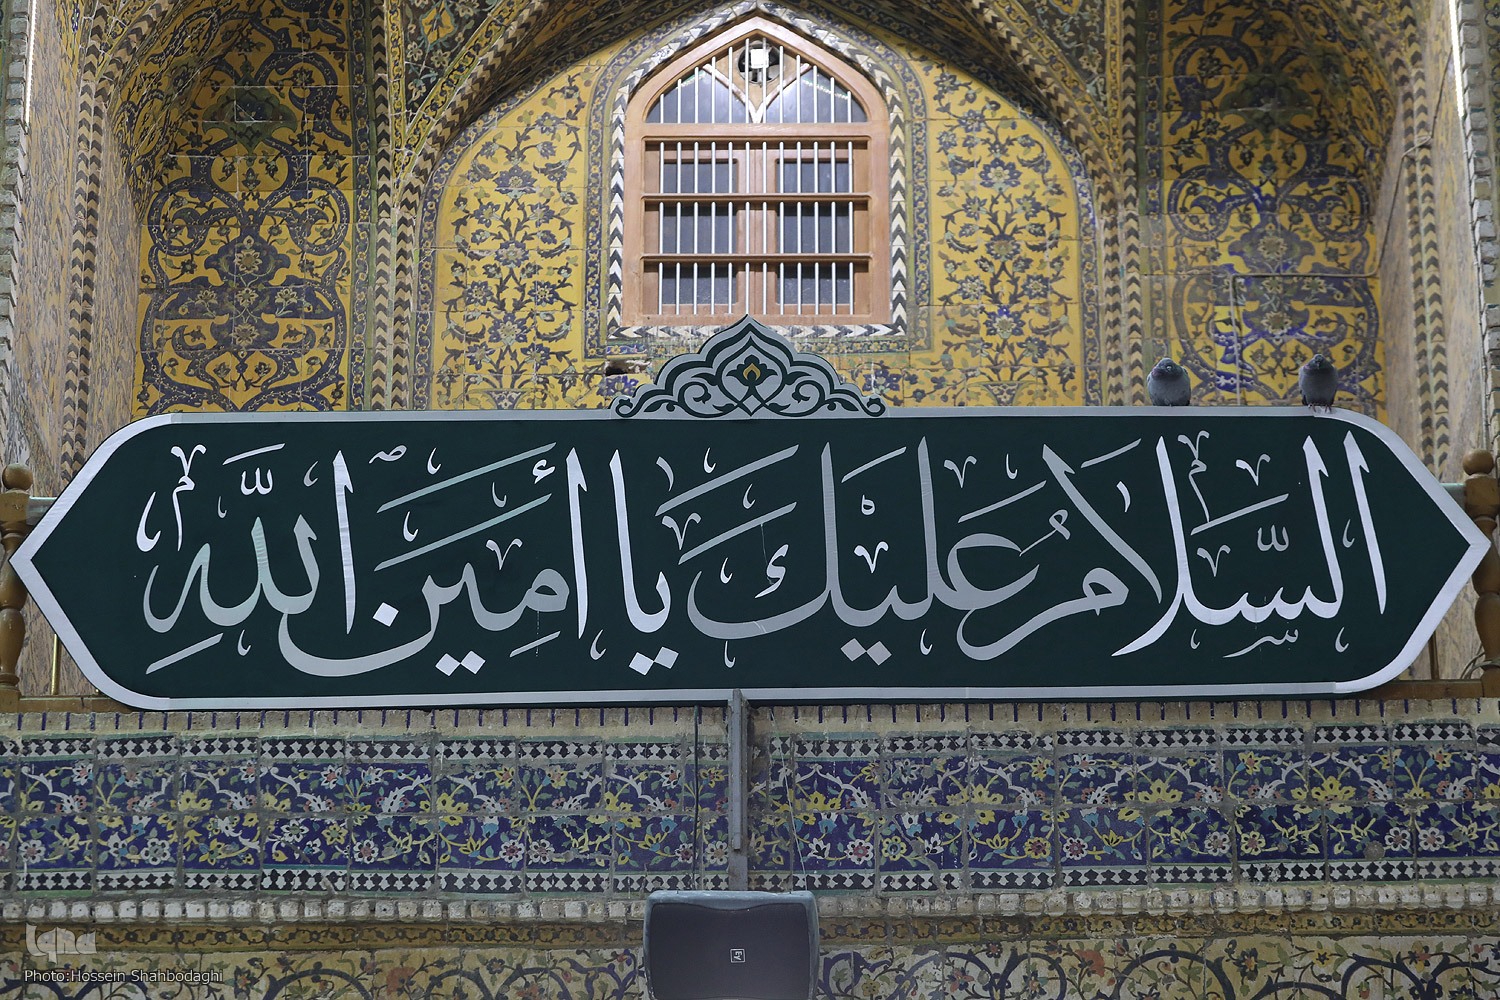 السَّلَامُ عَلَيْكَ يَا أَمِينَ اللَّهِ
iqna
Photo:Hossein Shahbodaghi